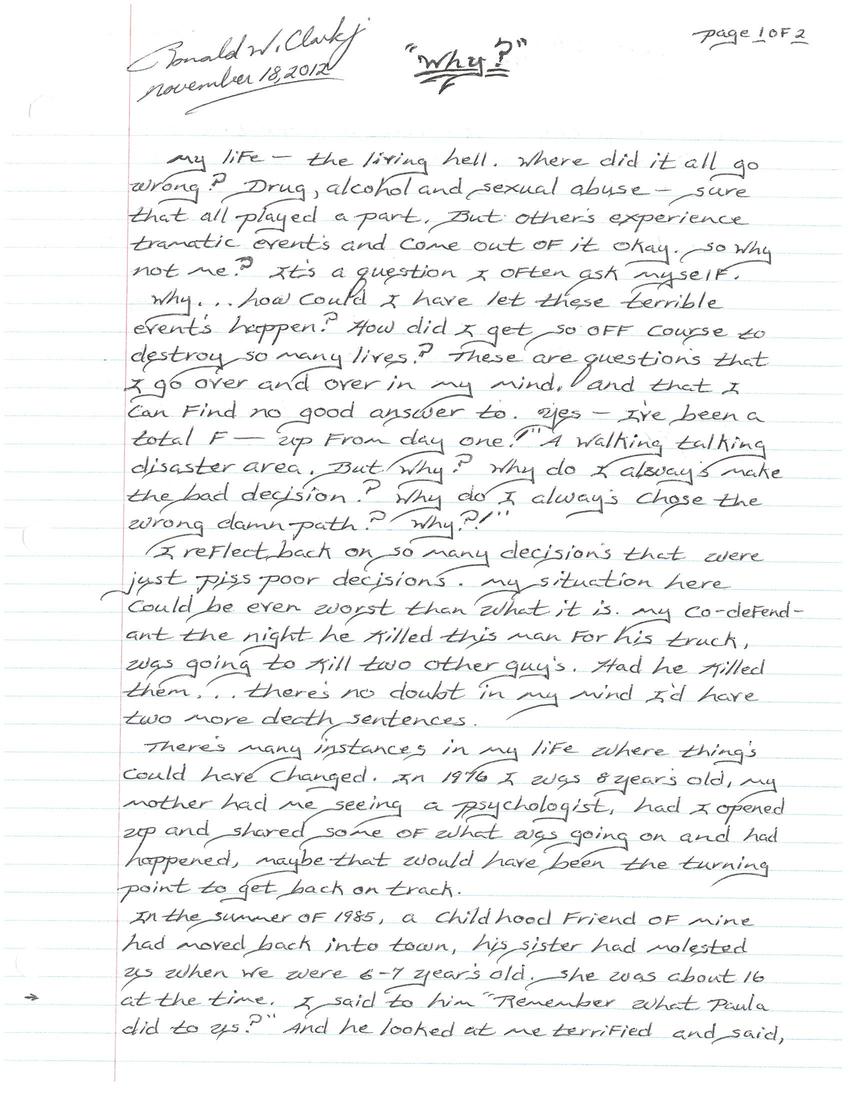 Ronald W. Clark Jr
November 18, 2012
"Why?"
page 1 OF 2
My life — the living hell. Where did it all go
wrong? Drug, alcohol and sexual abuse — sure
that all played a part. But other's experience
tramatic event's and come out of it okay. So why
not me? It's a question I often ask myself.
Why... how could I have let these terrible
event's happen? How did I get so off course to
destroy so many lives? These are question's that
I go over and over in my mind, and that I
can find no good answer to. Yes — I've been a
total F— up from day one! "A walking talking
disaster area. But why? Why do I always make
the bad decision? Why do I always chose the
wrong damn path? Why?!"
I reflect back on so many decision's that were
just piss poor decisions. My situation here
could be even worst than what it is. My co-defend-
ant the night he killed this man for his truck,
was going to kill two other guy's. Had he killed
them... there's no doubt in my mind I'd have
two more death sentences.
There's many instances in my life where thing's
could have changed. In 1976 I was 8 year's old, my
mother had me seeing a psychologist, had I opened
up and shared some of what was going on and had
happened, maybe that would have been the turning
point to get back on track.
In the summer of 1985, a childhood friend of mine
had moved back into town, his sister had molested
us when we were 6-7 year's old. She was about 16
at the time. I said to him "Remember what Paula
did to us?" And he looked at me terrified and said,